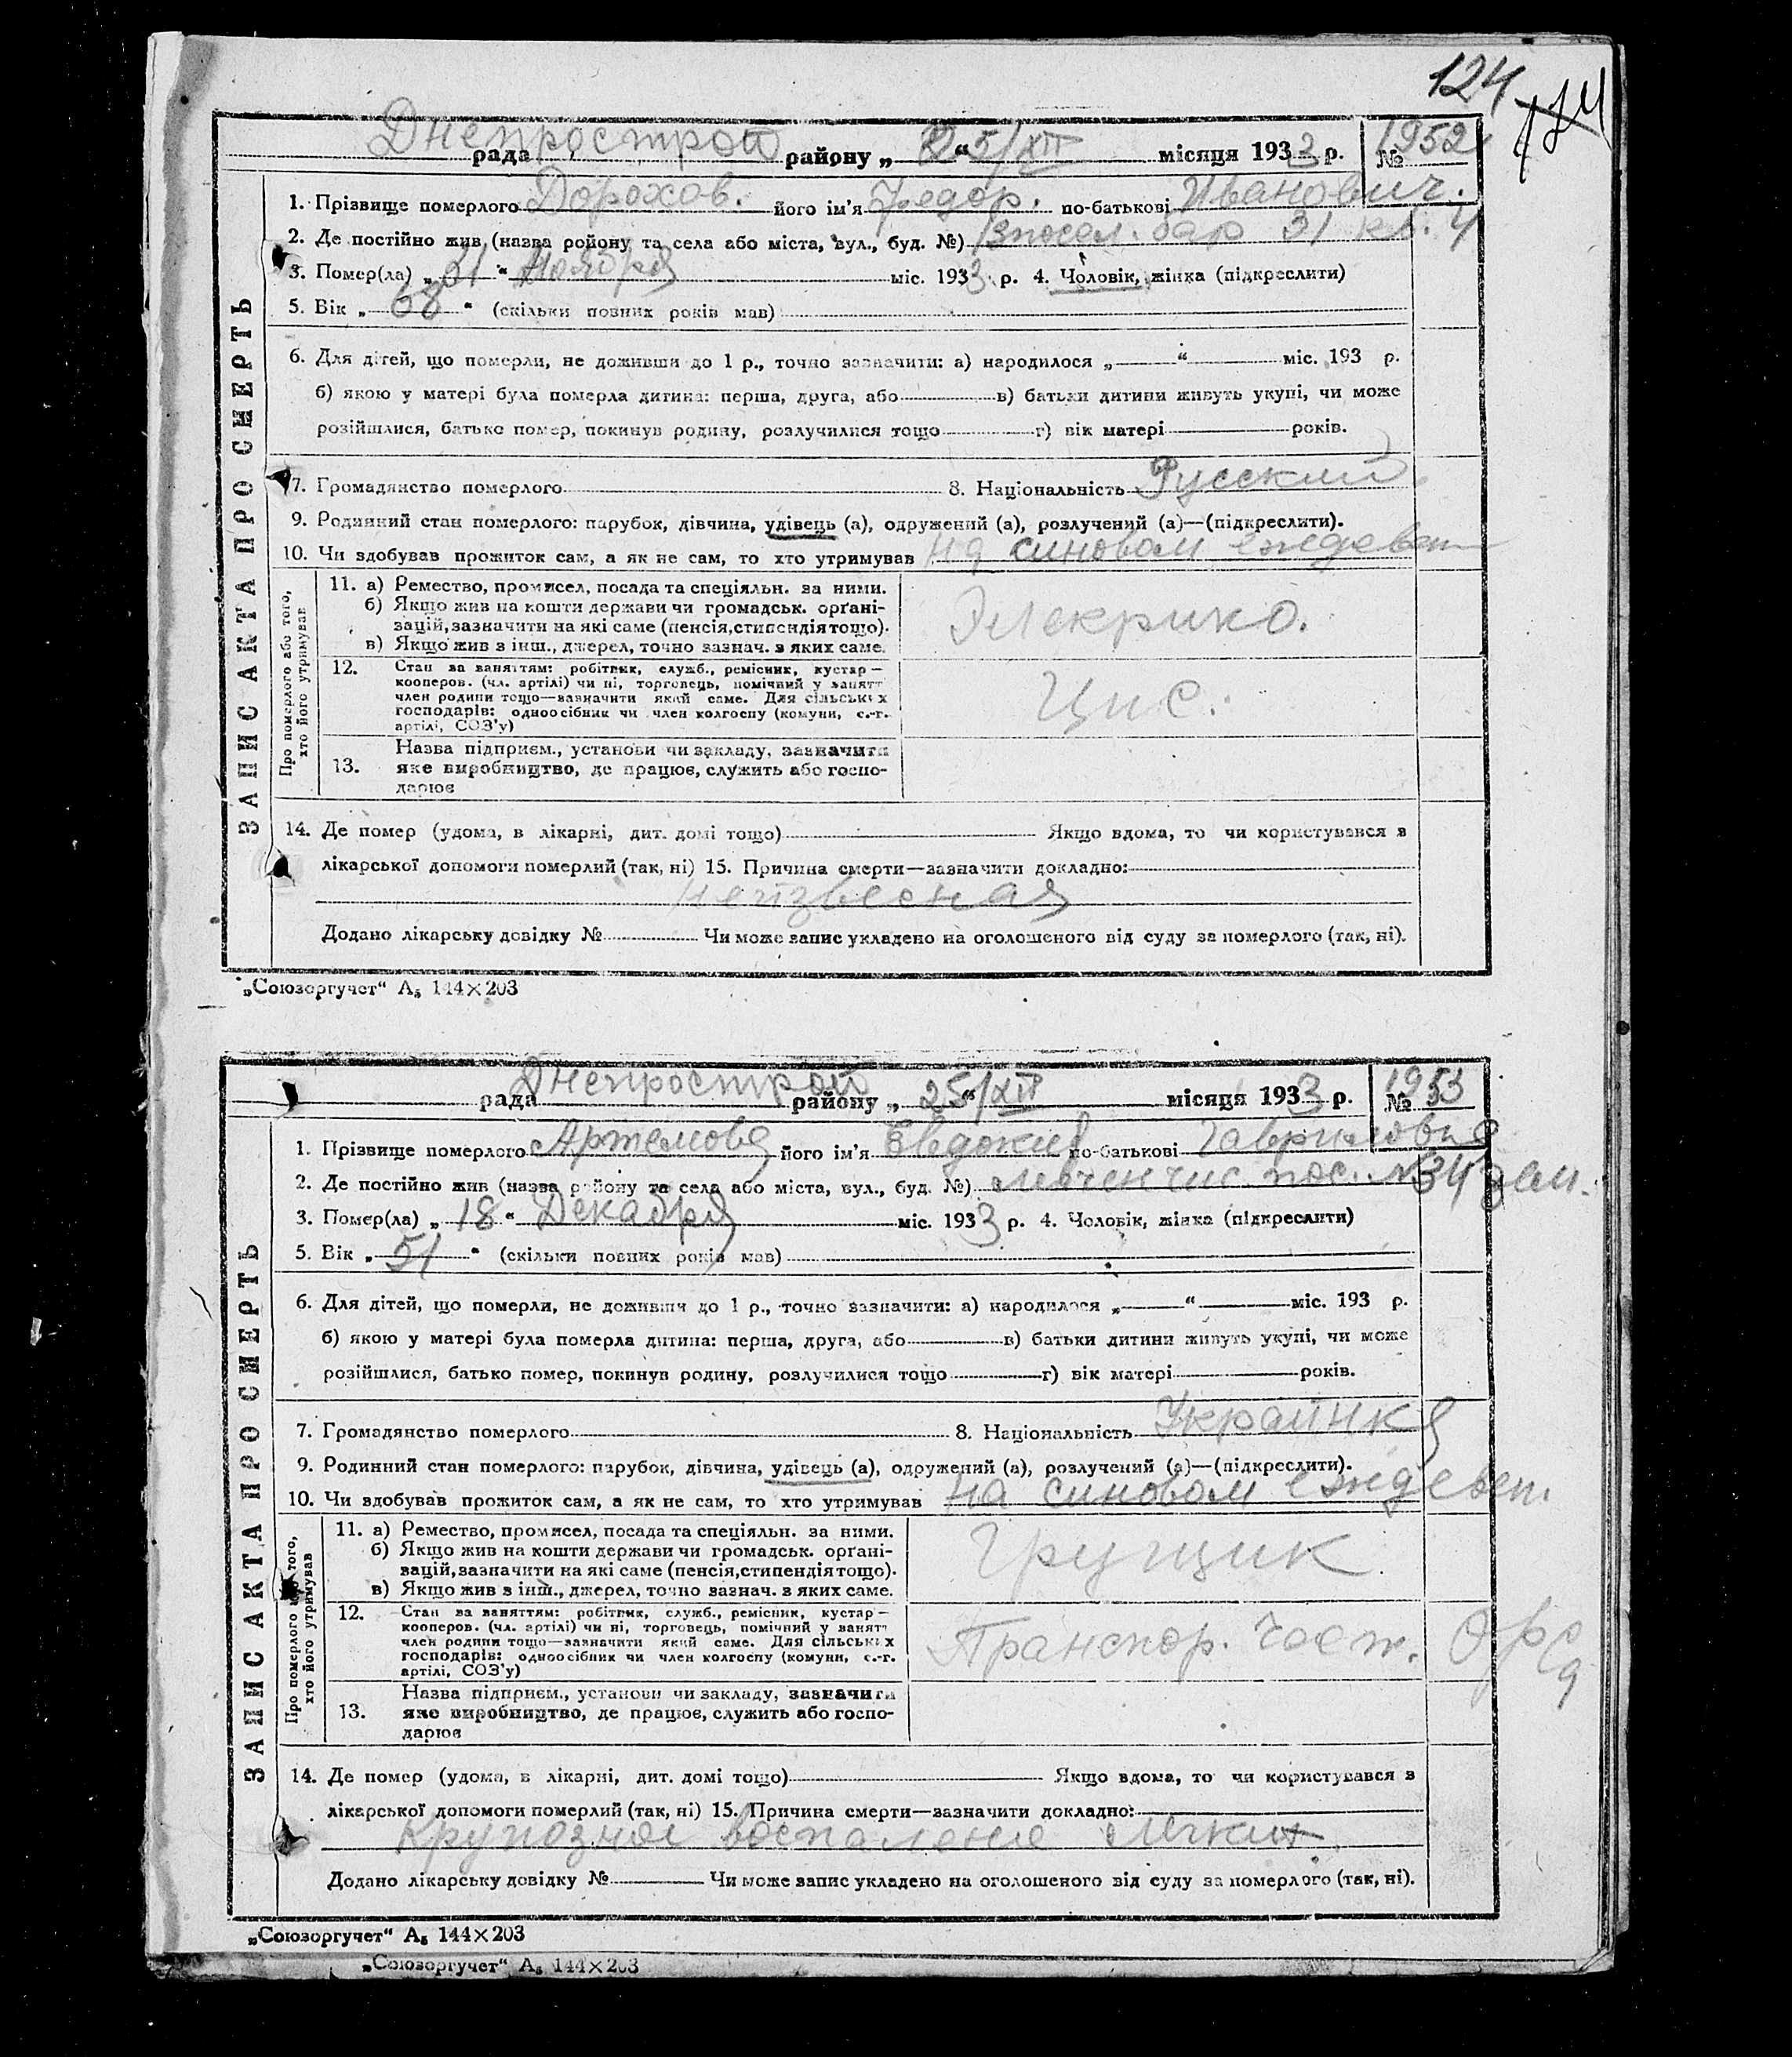 124
174
Днепрострой
рада района „25/XII“ місяця 1933 р. № 1952
1. Прізвище померлого Дорохов. його ім'я Федор. по-батькові Иванович.
2. Де постійно жив (назва ройону та села або міста, вул., буд. №) посел. бар 31 кв. 4
3. Помер(ла) „31“ Ноября міс. 1933 р. 4. Чоловік, жінка (підкреслити)
5. Вік „68“ (скільки повних років мав)
6. Для дітей, що померли, не доживши до 1 р., точно зазначити: а) народилося „ “ міс. 193 р.
б) якою у матері була померла дитина: перша, друга, або в) батьки дитини живуть укупі, чи може
розійшлися, батько помер, покинув родину, розлучилися тощо г) вік матері років.
7. Громадянство померлого 8. Національність Русский
9. Родинний стан померлого: парубок, дівчина, удівець (а), одружений (а), розлучений (а)—(підкреслити).
10. Чи здобував прожиток сам, а як не сам, то хто утримував на синовом еждевен
ЗАПИС АКТА ПРО СМЕРТЬ
Про померлого або того, хто його утримував
11. а) Ремество, промисел, посада та спеціяльн. за ними.
б) Якщо жив на кошти держави чи громадськ. орґані-
зацій, зазначити на які саме (пенсія, стипендія тощо).
в) Якщо жив з інш., джерел, точно зазнач. з яких саме.
Элекрико.
12. Стан за заняттям: робітник, служб., ремісник, кустар—
кооперов. (чл. артілі) чи ні, торговець, помічний у занятт
член родини тощо—зазначити який саме. Для сільських
господарів: одноосібник чи член колгоспу (комуни, с.-г.
артілі, СОЗ'у)
Цис.
13. Назва підприєм., установи чи закладу, зазначити
яке виробництво, де працює, служить або госпо-
дарює
14. Де помер (удома, в лікарні, дит. домі тощо) Якщо вдома, то чи користувався з
лікарської допомоги померлий (так, ні) 15. Причина смерти—зазначити докладно:
неизвесная
Додано лікарську довідку № Чи може запис укладено на оголошеного від суду за померлого (так, ні).
„Союзоргучет“ А₅ 144×203
Днепрострой
рада району „25/XII“ місяця 1933 р. № 1953
1. Прізвище померлого Артемова його ім'я Евдокия по-батькові Гавриловна
2. Де постійно жив (назва ройону та села або міста, вул., буд. №) пос. №34
3. Помер(ла) „18“ Декабря міс. 1933 р. 4. Чоловік, жінка (підкреслити)
5. Вік „51“ (скільки повних років мав)
6. Для дітей, що померли, не доживши до 1 р., точно зазначити: а) народилося „ “ міс. 193 р.
б) якою у матері була померла дитина: перша, друга, або в) батьки дитини живуть укупі, чи може
розійшлися, батько помер, покинув родину, розлучилися тощо г) вік матері років.
7. Громадянство померлого 8. Національність Украинка
9. Родинний стан померлого: парубок, дівчина, удівець (а), одружений (а), розлучений (а)—(підкреслити).
10. Чи здобував прожиток сам, а як не сам, то хто утримував на синовом еждевен.
ЗАПИС АКТА ПРО СМЕРТЬ
Про померлого або того, хто його утримував
11. а) Ремество, промисел, посада та спеціяльн. за ними.
б) Якщо жив на кошти держави чи громадськ. орґані-
зацій, зазначити на які саме (пенсія, стипендія тощо).
в) Якщо жив з інш., джерел, точно зазнач. з яких саме.
Грущик
12. Стан за заняттям: робітник, служб., ремісник, кустар—
кооперов. (чл. артілі) чи ні, торговець, помічний у занятт
член родини тощо—зазначити який саме. Для сільських
господарів: одноосібник чи член колгоспу (комуни, с.-г.
артілі, СОЗ'у)
Транспор. Част. Орса
13. Назва підприєм., установи чи закладу, зазначити
яке виробництво, де працює, служить або госпо-
дарює
14. Де помер (удома, в лікарні, дит. домі тощо) Якщо вдома, то чи користувався з
лікарської допомоги померлий (так, ні) 15. Причина смерти—зазначити докладно:
Крупозное воспаление легких
Додано лікарську довідку № Чи може запис укладено на оголошеного від суду за померлого (так, ні).
„Союзоргучет“ А₅ 144×203
„Союзоргучет“ А₅ 144×203